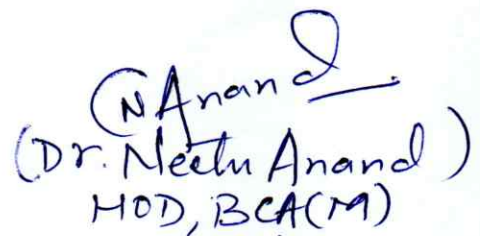 NAnand
(Dr. Neetu Anand)
HOD, BCA(M)